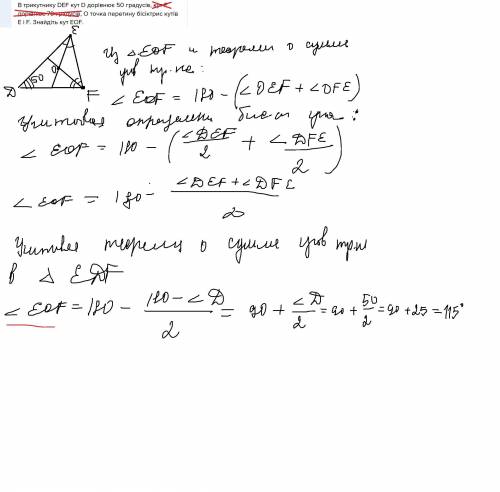 В трикутнику DEF кут D дорівнює 50 градусів, де F
дорівнює 70 градусів. O точка перетину бісіктрис кутів
E і F. Знайдіть кут EOF.
E
D 50 O F
Из △EOF и теоремы о сумме
углов тр-ка:
∠EOF = 180 - (∠DEF + ∠DFE)
Учитовая определения бисс угла:
∠EOF = 180 - (∠DEF/2 + ∠DFE/2)
∠EOF = 180 - ∠DEF + ∠DFE/2
Учитовая теорема о сумме углов трик
В △ EDF
∠EOF = 180 - 180 - ∠D/2 = 90 + ∠D/2 = 90 + 50/2 = 90 + 25 = 115°